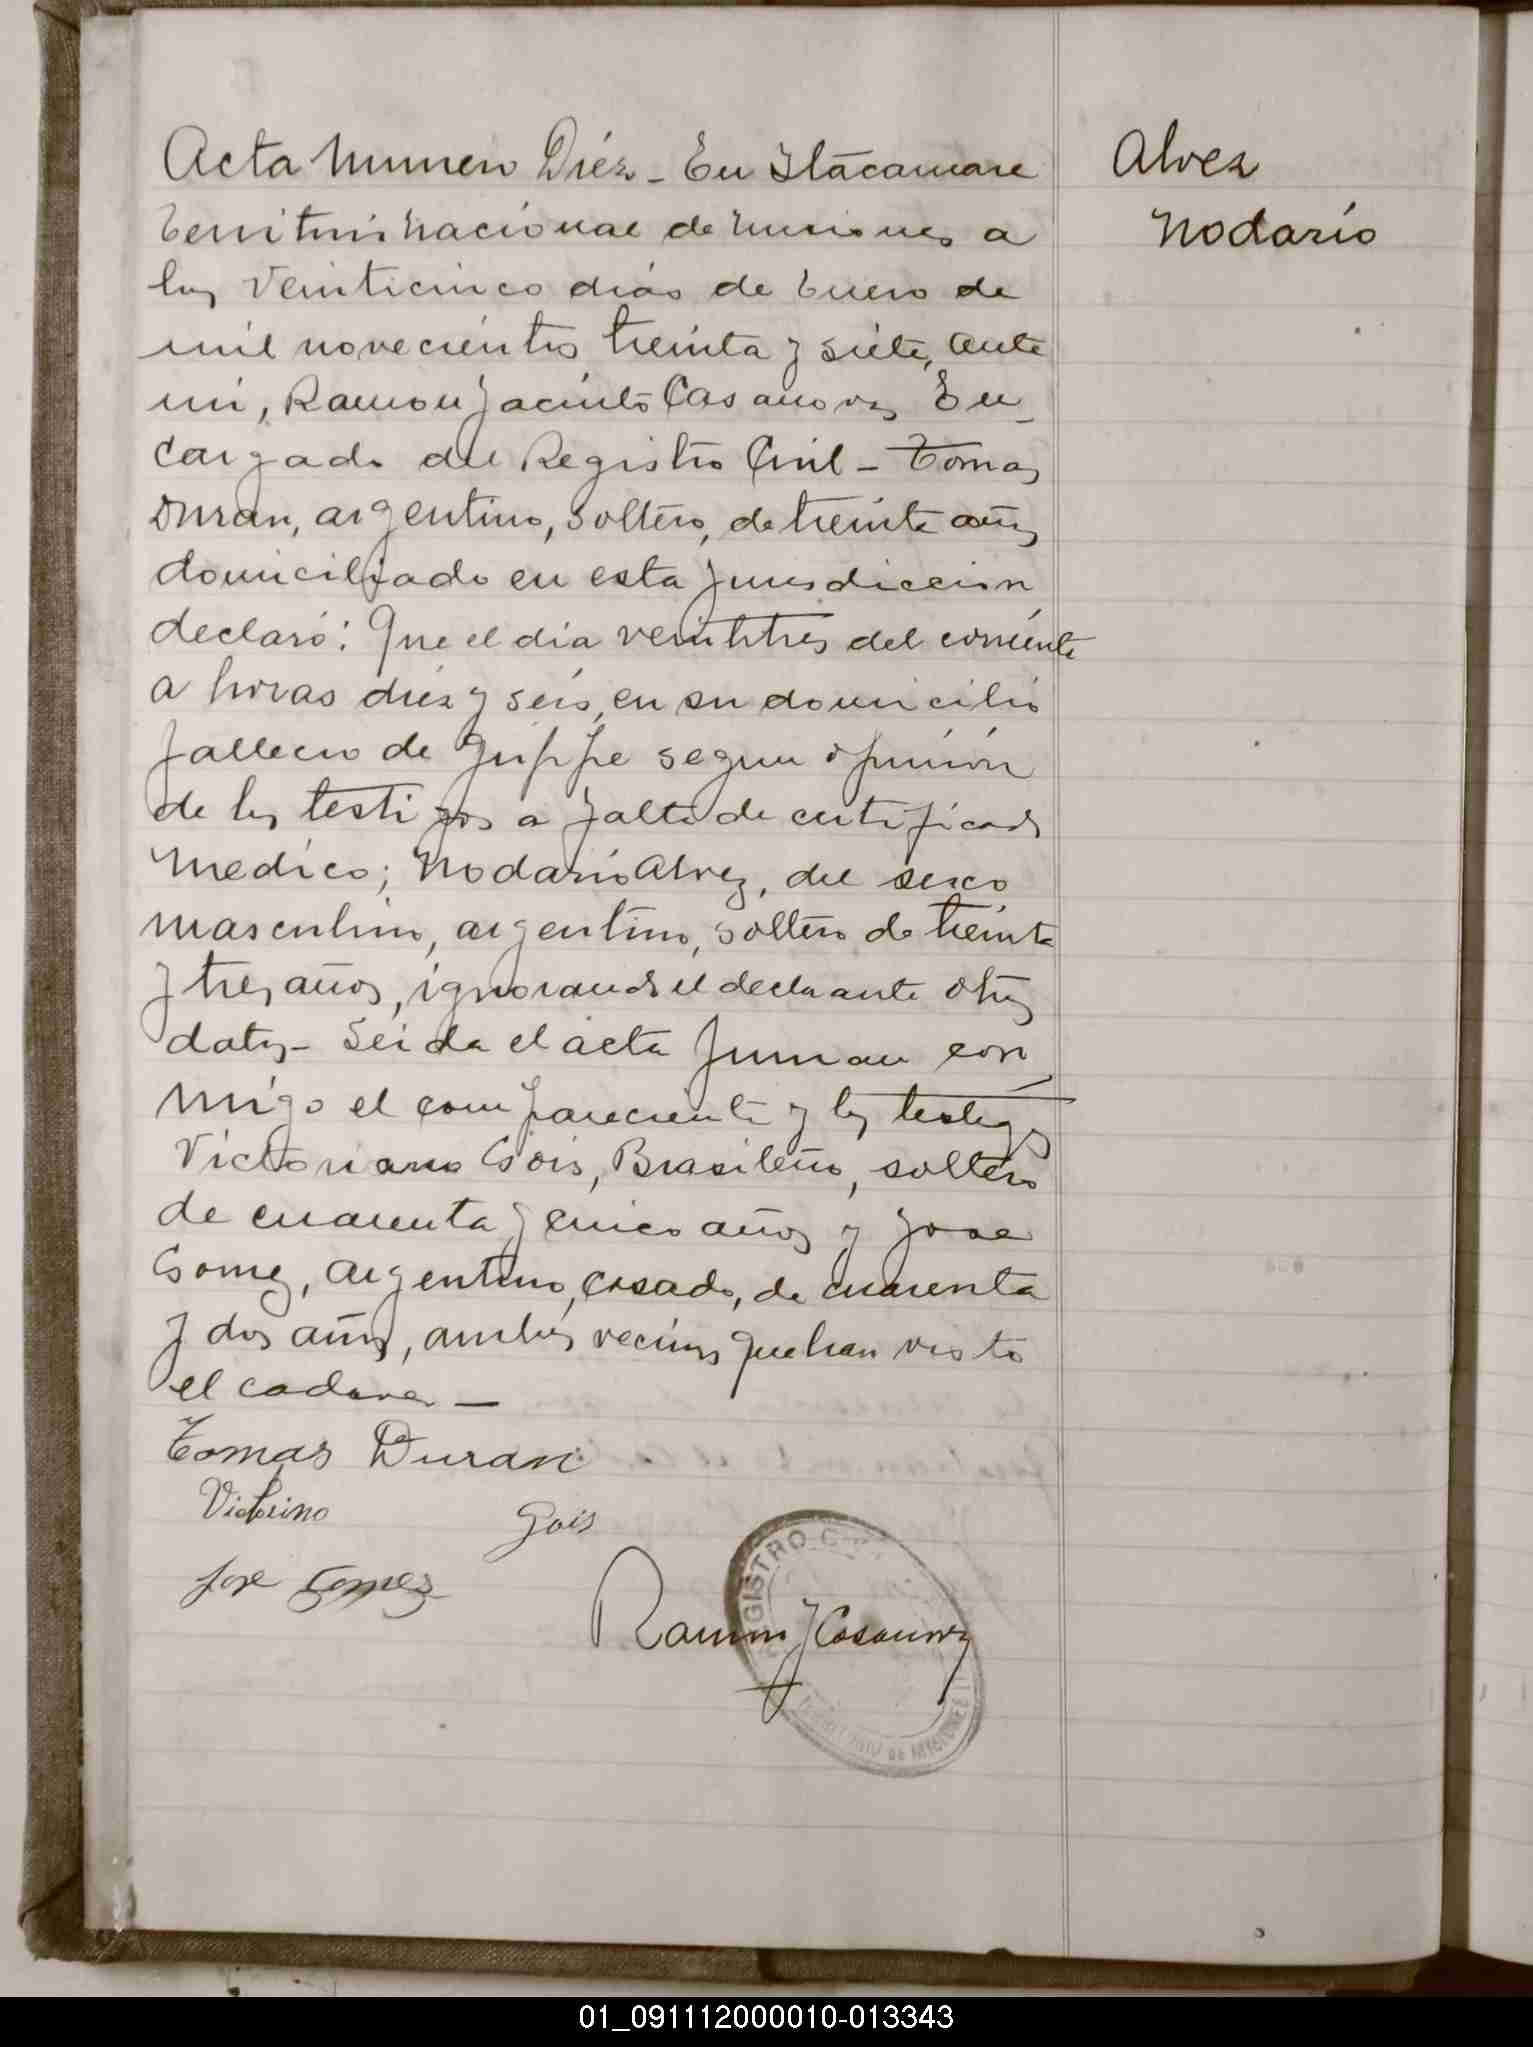 Acta Numero Diéz - En Itacaruare
Territorio Nacional de Misiones a
los Veinticinco dias de Enero de
mil novecientos treinta y siete, ante
mi, Ramon Jacinto Casanova, En-
cargado del Registro Civil - Tomas
Duran, argentino, soltero, de treinta años
domiciliado en esta Jurisdiccion
declaró: Que el dia veintitres del corriente
a horas diez y seis, en su domicilio
fallecio de Grippe segun opinión
de los testigos a falta de certificado
Medico; Nodario Alvez, del sexo
masculino, argentino, soltero de treinta
y tres años, ignorando el declarante otros
datos - Leida el acta firman con
migo el compareciente y los testigos
Victoriano Gois, Brasileño, soltero
de cuarenta y cinco años y Jose
Gomez, argentino, casado, de cuarenta
y dos años, ambos vecinos que han visto
el cadaver -
Tomas Duran
Victorino Gois
Jose Gomez
Ramon J Casanova
REGISTRO C
DE MISIONES
Alvez
Nodario
01_091112000010-013343